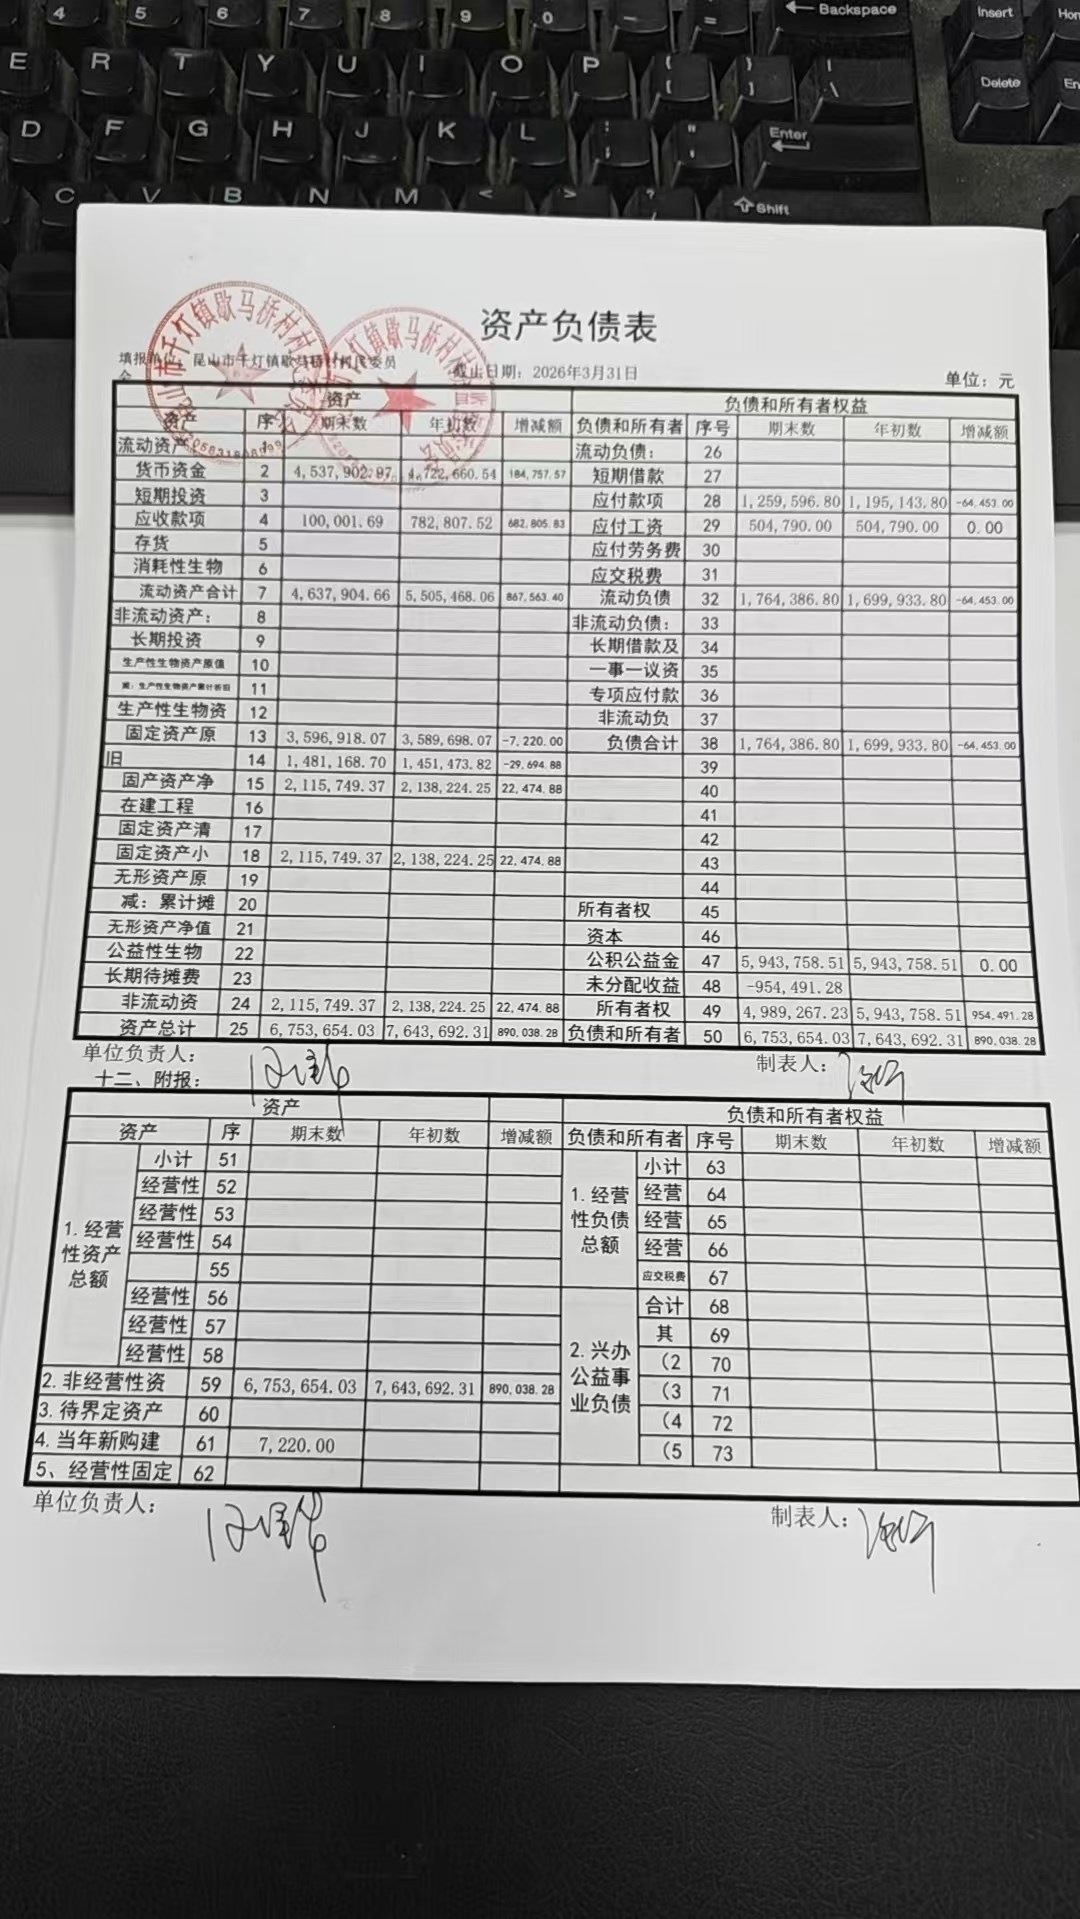 4 5 6 7 8 9 0 — = Backspace Insert
E R T Y U I O P [ ] \ Delete
D F G H J K L ; " Enter
C V B N M < > ? Shift
资产负债表
填报单位：昆山市千灯镇歇马桥村村民委员会 截止日期：2026年3月31日 单位：元
资产 负债和所有者权益
资产 序 期末数 年初数 增减额 负债和所有者 序号 期末数 年初数 增减额
流动资产 1 流动负债： 26
货币资金 2 4,537,902.97 4,722,660.54 184,757.57 短期借款 27
短期投资 3 应付款项 28 1,259,596.80 1,195,143.80 -64,453.00
应收款项 4 100,001.69 782,807.52 682,805.83 应付工资 29 504,790.00 504,790.00 0.00
存货 5 应付劳务费 30
消耗性生物 6 应交税费 31
流动资产合计 7 4,637,904.66 5,505,468.06 867,563.40 流动负债 32 1,764,386.80 1,699,933.80 -64,453.00
非流动资产： 8 非流动负债： 33
长期投资 9 长期借款及 34
生产性生物资产原值 10 一事一议资 35
减：生产性生物资产累计折旧 11 专项应付款 36
生产性生物资 12 非流动负 37
固定资产原 13 3,596,918.07 3,589,698.07 -7,220.00 负债合计 38 1,764,386.80 1,699,933.80 -64,453.00
旧 14 1,481,168.70 1,451,473.82 -29,694.88 39
固产资产净 15 2,115,749.37 2,138,224.25 22,474.88 40
在建工程 16 41
固定资产清 17 42
固定资产小 18 2,115,749.37 2,138,224.25 22,474.88 43
无形资产原 19 44
减：累计摊 20 所有者权 45
无形资产净值 21 资本 46
公益性生物 22 公积公益金 47 5,943,758.51 5,943,758.51 0.00
长期待摊费 23 未分配收益 48 -954,491.28
非流动资 24 2,115,749.37 2,138,224.25 22,474.88 所有者权 49 4,989,267.23 5,943,758.51 954,491.28
资产总计 25 6,753,654.03 7,643,692.31 890,038.28 负债和所有者 50 6,753,654.03 7,643,692.31 890,038.28
单位负责人： 制表人：
十二、附报：
资产 负债和所有者权益
资产 序 期末数 年初数 增减额 负债和所有者 序号 期末数 年初数 增减额
1.经营性资产总额 小计 51 1.经营性负债总额 小计 63
经营性 52 经营 64
经营性 53 经营 65
经营性 54 经营 66
55 应交税费 67
经营性 56 2.兴办公益事业负债 合计 68
经营性 57 其 69
经营性 58 （2 70
2.非经营性资 59 6,753,654.03 7,643,692.31 890,038.28 （3 71
3.待界定资产 60 （4 72
4.当年新购建 61 7,220.00 （5 73
5、经营性固定 62
单位负责人： 制表人：